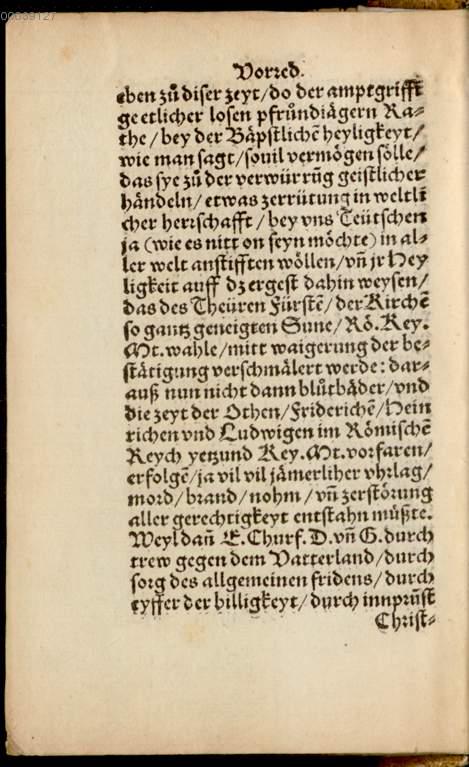 00089127
Vorred.
eben zů diser zeyt/do der amptgrifft
ge etlicher losen pfrůndiägern Ra-
the/bey der Bäpstlichē heyligkeyt/
wie man sagt/souil vermögen sölle/
das sye zů der verwürrũg geistlicher
händeln/etwas zerrütung in weltli
cher herrschafft/bey vns Teütschen
ja (wie es nitt on seyn möchte) in al-
ler welt anstifften wöllen/vñ jr Hey
ligkeit auff dz ergest dahin weysen/
das des Theüren Fürstē/der Kirchē
so gantz geneigten Sune/Rö.Key.
Mt.wahle/mitt waigerung der be-
stätigung verschmälert werde: dar-
auß nun nicht dann blůtbäder/vnd
die zeyt der Othen/Friderichē/Hein
richen vnd Ludwigen im Römischē
Reych yetzund Key.Mt.vorfaren/
erfolgē/ja vil vil jämerliher vhrlag/
mord/brand/nohm/vñ zerstörung
aller gerechtigkeyt entstahn müßte.
Weyl dañ E.Churf.D.vñ G.durch
trew gegen dem Vatterland/durch
sorg des allgemeinen fridens/durch
eyffer der billigkeyt/durch innprũst
Christ-